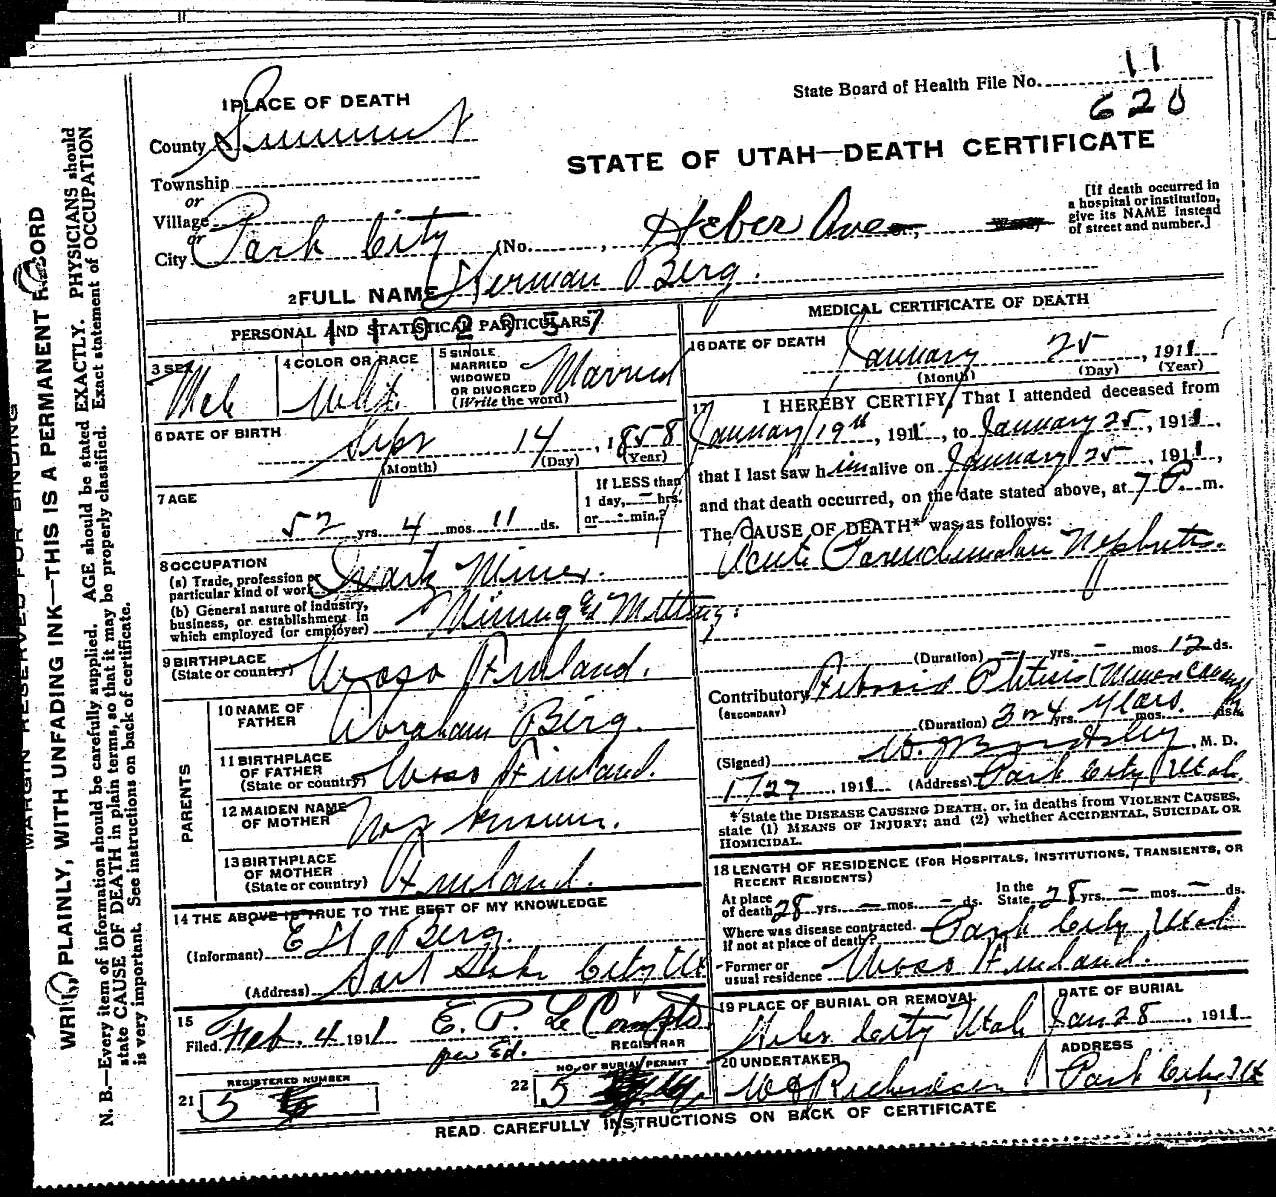 State Board of Health File No. 11
620
1 PLACE OF DEATH
County Summit
STATE OF UTAH—DEATH CERTIFICATE
Township
or
Village
or
City Park City (No. , Heber Ave
[If death occurred in
a hospital or institution,
give its NAME instead
of street and number.]
2 FULL NAME Herman Berg.
PERSONAL AND STATISTICAL PARTICULARS
3 SEX Male
4 COLOR OR RACE White
5 SINGLE
MARRIED
WIDOWED
OR DIVORCED
(Write the word) Married
6 DATE OF BIRTH
Sept 14, 1858
(Month) (Day) (Year)
7 AGE
52 yrs. 4 mos. 11 ds.
If LESS than
1 day, – hrs.
or – min.?
8 OCCUPATION
(a) Trade, profession or
particular kind of work Quartz Miner.
(b) General nature of industry,
business, or establishment in
which employed (or employer) Mining &
9 BIRTHPLACE
(State or country) Woso Finland.
PARENTS
10 NAME OF
FATHER Abraham Berg.
11 BIRTHPLACE
OF FATHER
(State or country) Woso Finland.
12 MAIDEN NAME
OF MOTHER Not Known.
13 BIRTHPLACE
OF MOTHER
(State or country) Finland.
14 THE ABOVE IS TRUE TO THE BEST OF MY KNOWLEDGE
(Informant) Berg.
(Address) Salt Lake City Ut
15
Filed Feb. 4 1911 E. P. Le Compte
REGISTRAR
per Ed.
21 REGISTERED NUMBER 5
22 NO. OF BURIAL PERMIT 5
MEDICAL CERTIFICATE OF DEATH
16 DATE OF DEATH
January 25, 1911
(Month) (Day) (Year)
17 I HEREBY CERTIFY, That I attended deceased from
January 19th, 1911, to January 25, 1911,
that I last saw him alive on January 25, 1911,
and that death occurred, on the date stated above, at 7 P. m.
The CAUSE OF DEATH* was as follows:
Acute Parenchymatous Nephritis.
(Duration) – yrs. – mos. 12 ds.
Contributory Fibroid Phthisis (Miners Con
(SECONDARY)
(Duration) 3 or 4 yrs. Years. mos. ds.
(Signed) , M. D.
1/27, 1911 (Address) Park City Utah
*State the DISEASE CAUSING DEATH, or, in deaths from VIOLENT CAUSES,
state (1) MEANS OF INJURY; and (2) whether ACCIDENTAL, SUICIDAL OR
HOMICIDAL.
18 LENGTH OF RESIDENCE (FOR HOSPITALS, INSTITUTIONS, TRANSIENTS, OR
RECENT RESIDENTS)
At place
of death 28 yrs. – mos. – ds.
In the
State 28 yrs. – mos. – ds.
Where was disease contracted,
if not at place of death? Park City, Utah
Former or
usual residence Woso Finland.
19 PLACE OF BURIAL OR REMOVAL
City Utah
DATE OF BURIAL
Jan 28, 1911
20 UNDERTAKER
Richardson
ADDRESS
Park City, Ut
READ CAREFULLY INSTRUCTIONS ON BACK OF CERTIFICATE
MARGIN RESERVED FOR BINDING
WRITE PLAINLY, WITH UNFADING INK—THIS IS A PERMANENT RECORD
N. B.—Every item of information should be carefully supplied. AGE should be stated EXACTLY. PHYSICIANS should
state CAUSE OF DEATH in plain terms, so that it may be properly classified. Exact statement of OCCUPATION
is very important. See instructions on back of certificate.